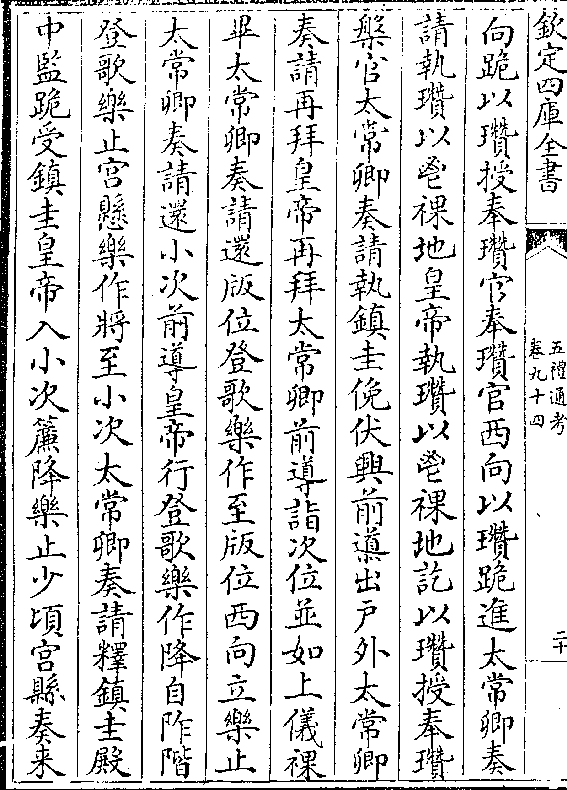 欽定四庫全書
五禮通考
卷九十四
二十
向跪以瓚授奉瓚官奉瓚官西向以瓚跪進太常卿奏
請執瓚以鬯祼地皇帝執瓚以鬯祼地訖以瓚授奉瓚
槃官太常卿奏請執鎮圭俛伏興前導出户外太常卿
奏請再拜皇帝再拜太常卿前導詣次位並如上儀祼
畢太常卿奏請還版位登歌樂作至版位西向立樂止
太常卿奏請還小次前導皇帝行登歌樂作降自阼階
登歌樂止宫懸樂作將至小次太常卿奏請釋鎮圭殿
中監跪受鎮圭皇帝入小次簾降樂止少頃宫縣奏来